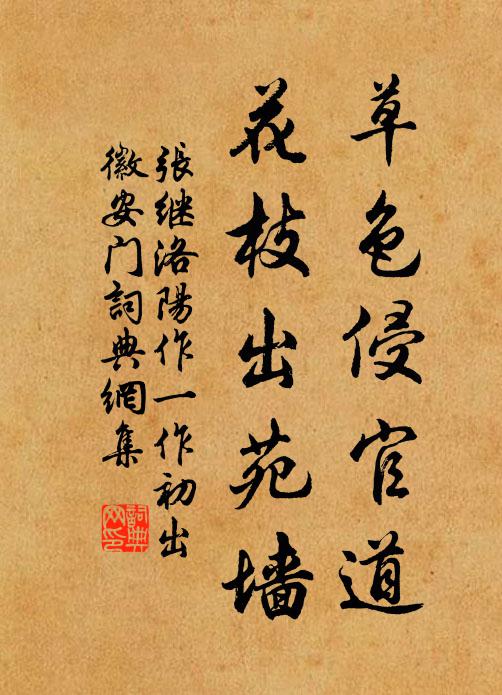 草色侵官道
花枝出苑墙
張继洛陽作一作初出
徽安门詞典網集
詞典
网印